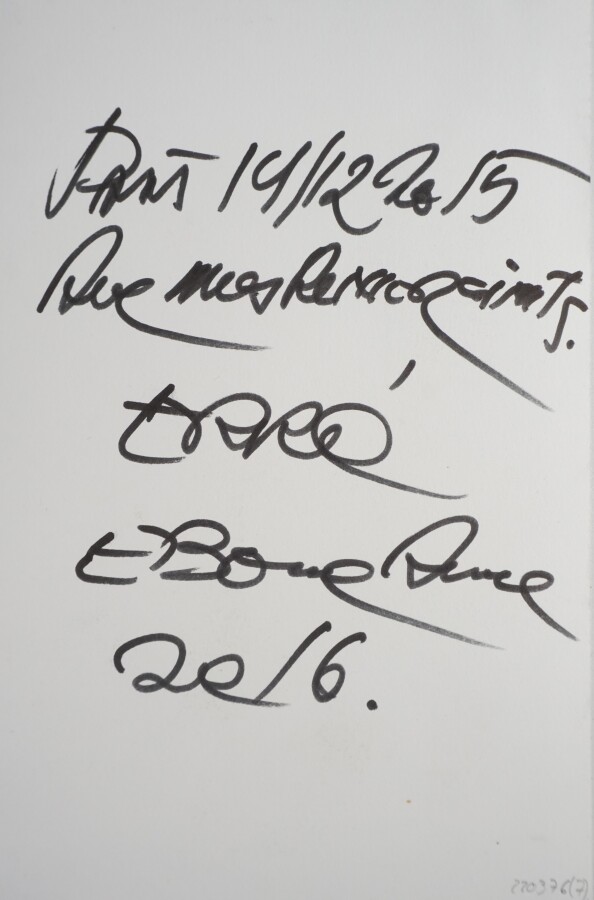 Paris 14/12 2015
Avec mes Remerciements.
ERRÓ
Et Bonne Année
2016.
220376(7)